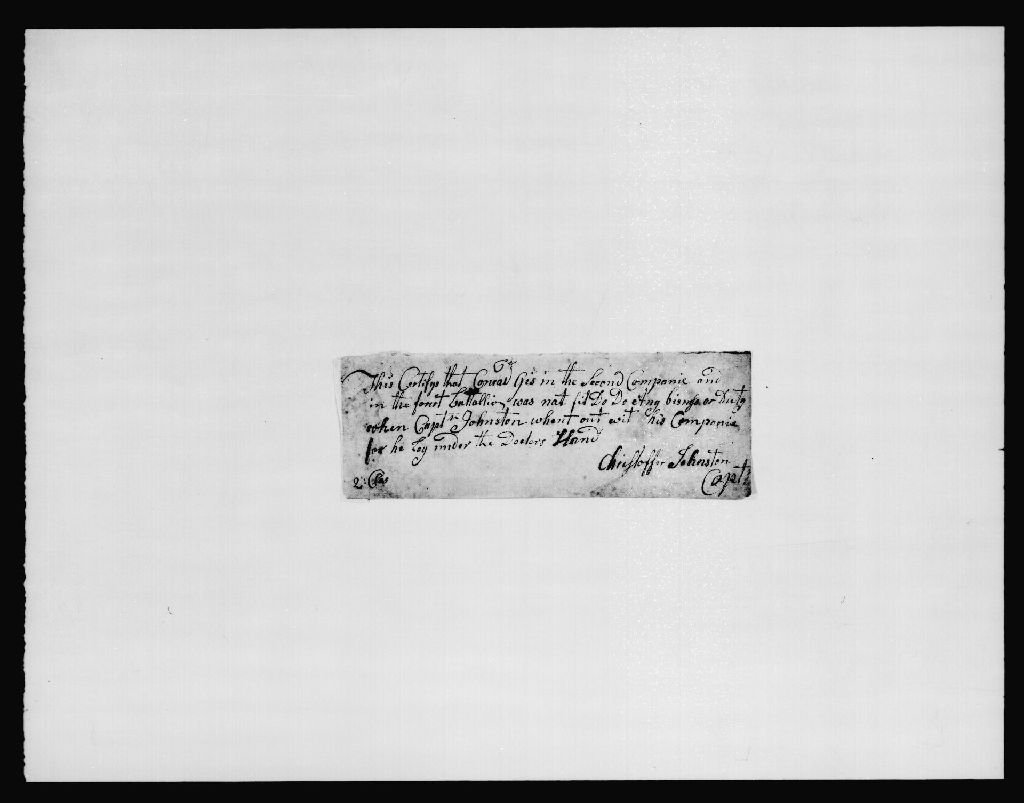 This Certifys that Conrad Geis in the Second Companie and
in the forst battallion was nat fit To Do eing bisnes or Duty
when Capt Johnston whent out wit his Companie
for he Lay under the Doctors Hand
Christoffer Johnston
Capt
2: Clas